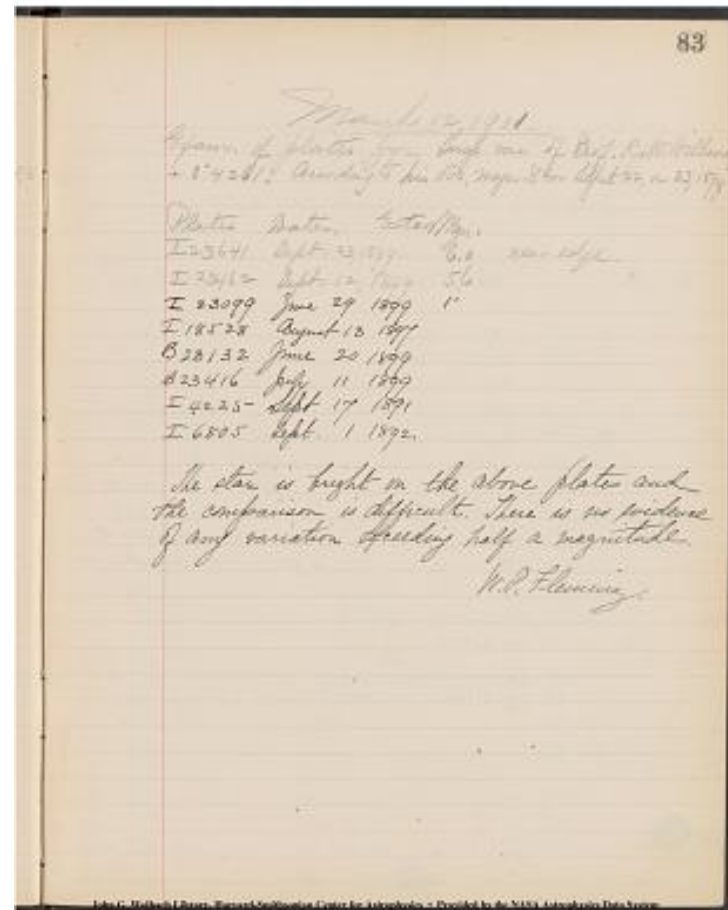 83
March 12, 1901
Exam. of plates for
+ 8°4261. According to his Obs. magn. 8 on Sept 22 or 23 1899
Plates Dates. Estd Mgn.
I 23641 Sept. 23 1899. 6.0 near edge.
I 23462 Sept 12, 1899 5.6
I 23099 June 29 1899 1"
I 18528 August 13 1897
B 23132 June 20 1899
B 23416 July 11 1899
I 4225 Sept 17 1891
I 6805 Sept. 1 1892.
The star is bright on the above plates and
the comparison is difficult. There is no evidence
of any variation exceeding half a magnitude.
W.P. Fleming.
John G. Wolbach Library, Harvard-Smithsonian Center for Astrophysics • Provided by the NASA Astrophysics Data System